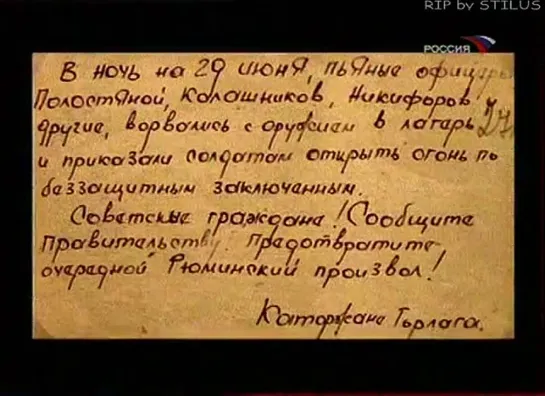 RIP by STILUS
РОССИЯ
В ночь на 29 июня, пьяные офицеры
Полостяной, Калашников, Никифоров и
другие, ворвались с оружием в лагерь
и приказали солдатам открыть огонь по
беззащитным заключенным.
Советские граждане! Сообщите
правительству. Предотвратите
очередной Рюминский произвол!
Каторжане Горлага.